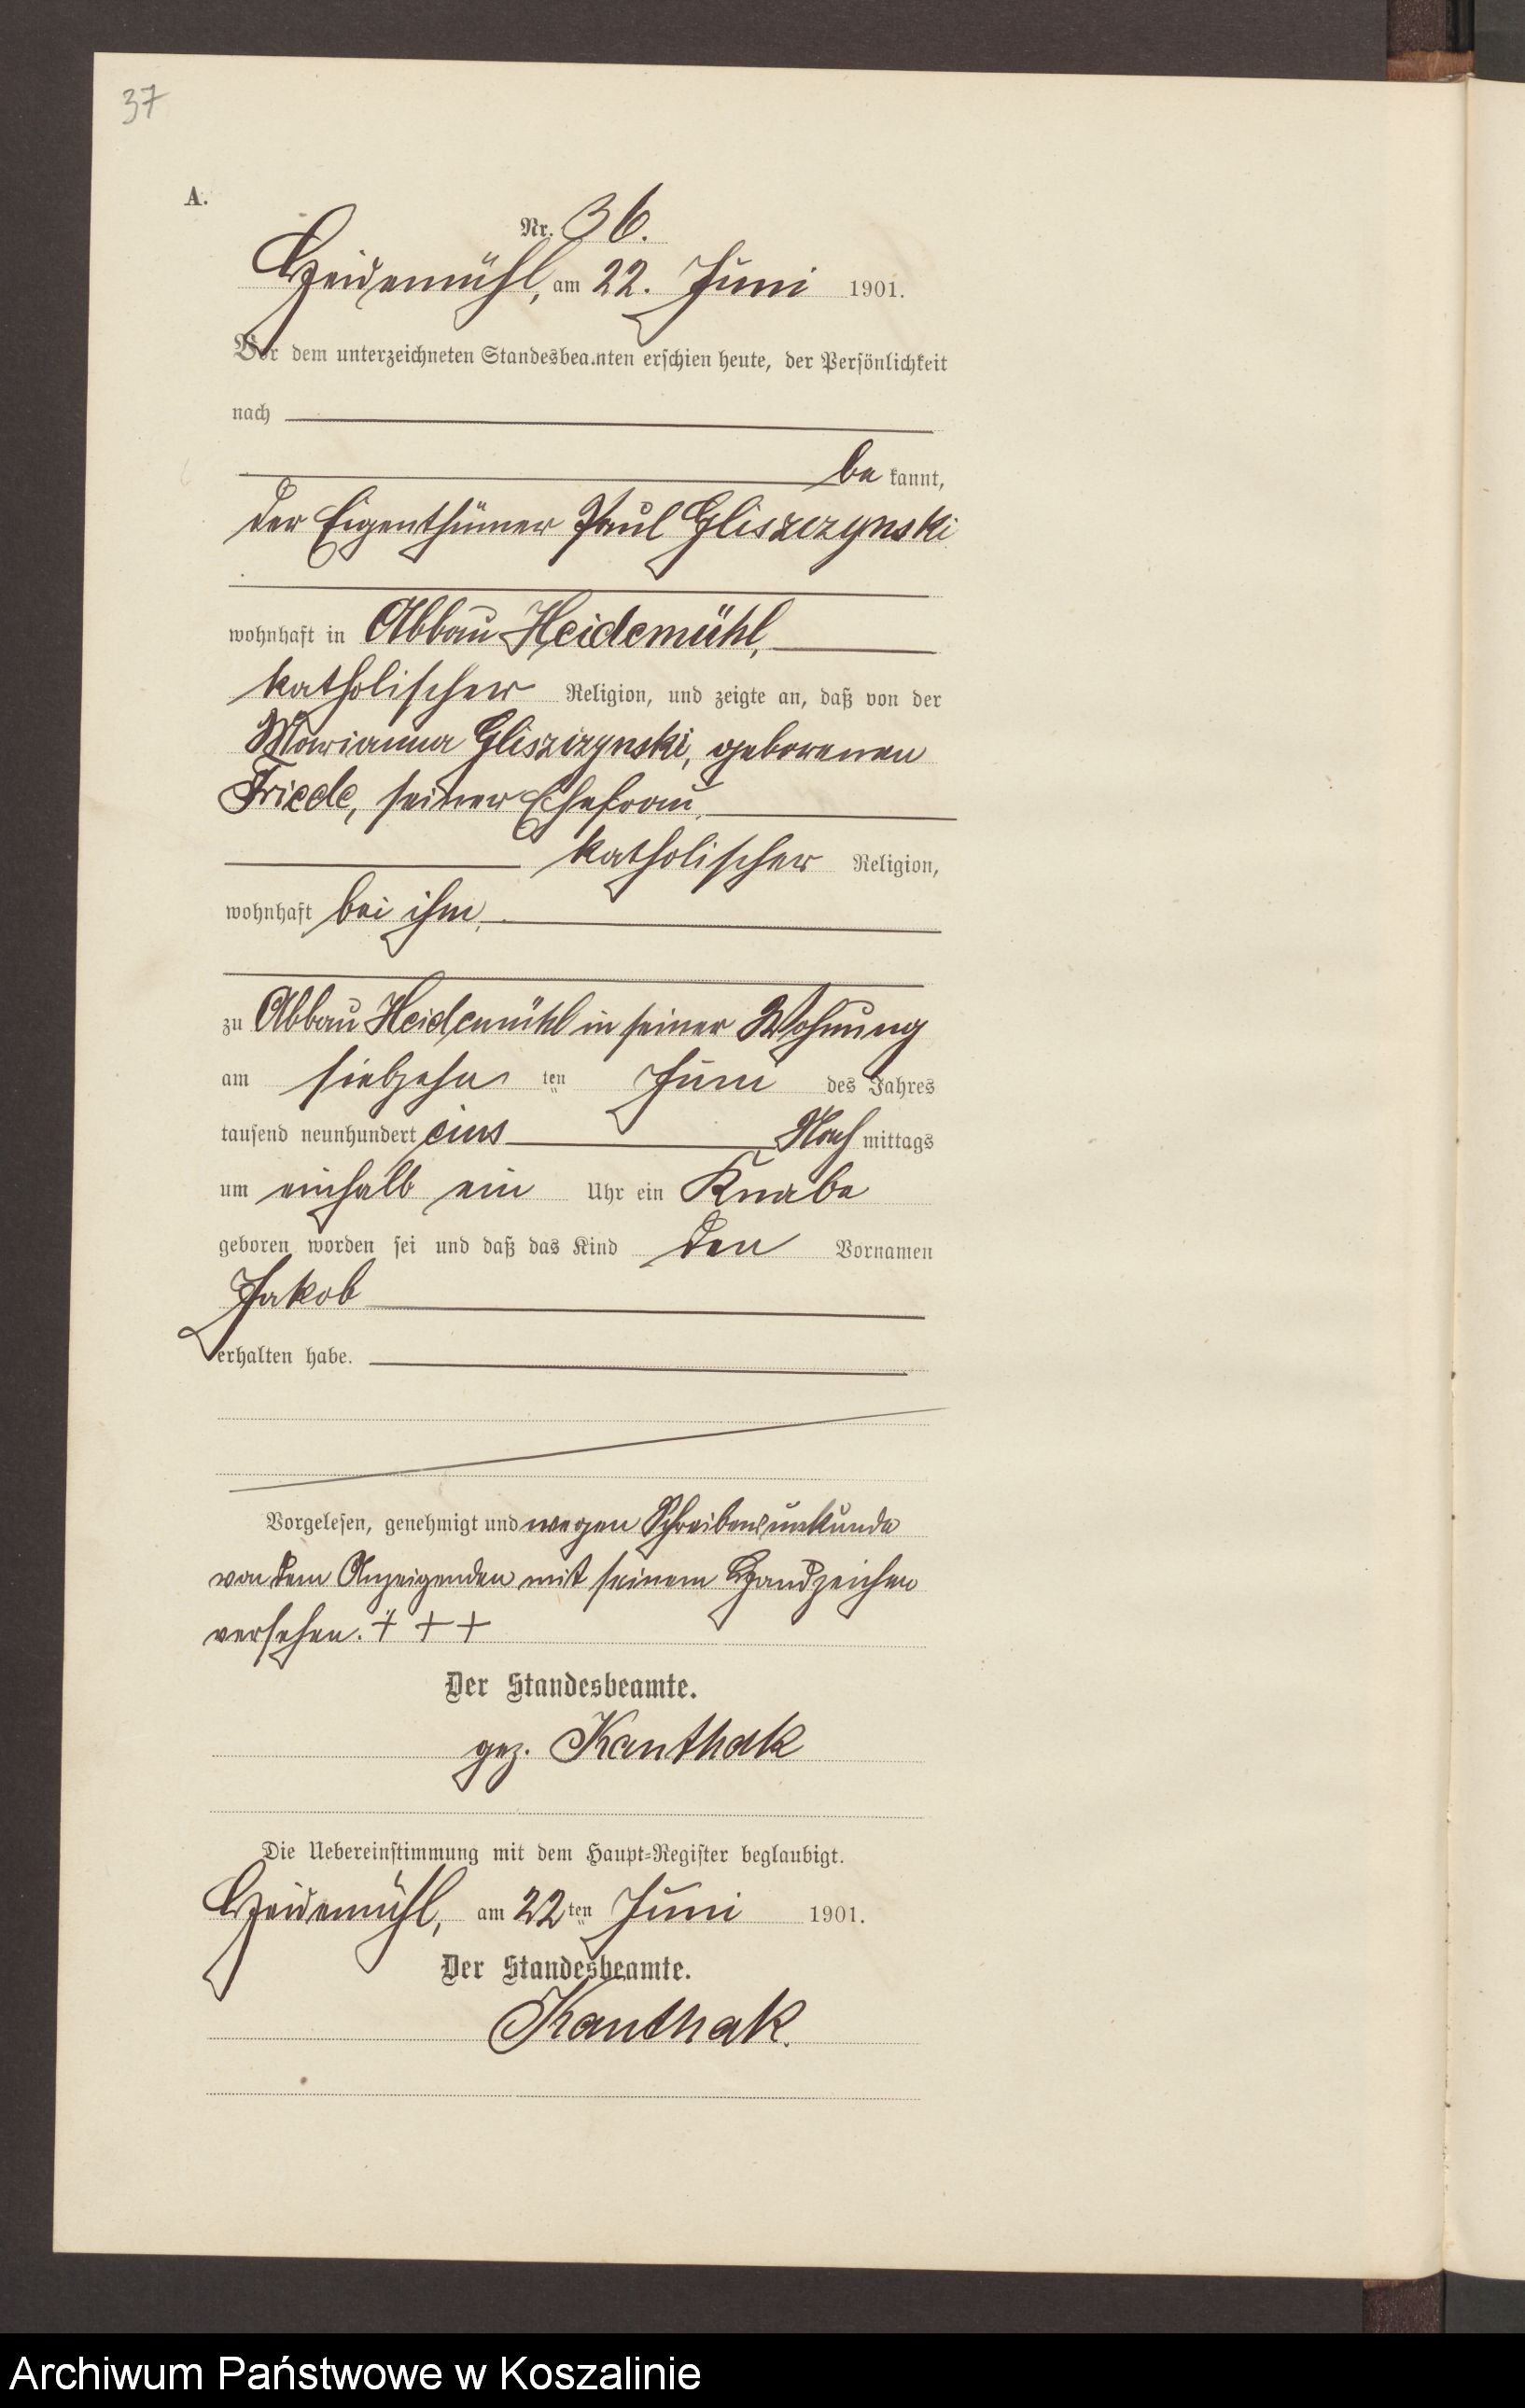 37
A.
Nr. 36.
Heidemühl, am 22. Juni 1901.
Vor dem unterzeichneten Standesbeamten erschien heute, der Persönlichkeit
nach
be kannt,
der Eigenthümer Paul Gliszczynski
wohnhaft in Abbau Heidemühl,
katholischer Religion, und zeigte an, daß von der
Marianna Gliszczynski, geborenen
Friede, seiner Ehefrau,
katholischer Religion,
wohnhaft bei ihm,
zu Abbau Heidemühl in seiner Wohnung
am siebzehn ten Juni des Jahres
tausend neunhundert eins Nach mittags
um einhalb ein Uhr ein Knabe
geboren worden sei und daß das Kind den Vornamen
Jakob
erhalten habe.
Vorgelesen, genehmigt und wegen Schreibensunkunde
von dem Anzeigenden mit seinem Handzeichen
versehen. + + +
Der Standesbeamte.
gez. Kanthak
Die Uebereinstimmung mit dem Haupt-Register beglaubigt.
Heidemühl, am 22ten Juni 1901.
Der Standesbeamte.
Kanthak.
Archiwum Państwowe w Koszalinie